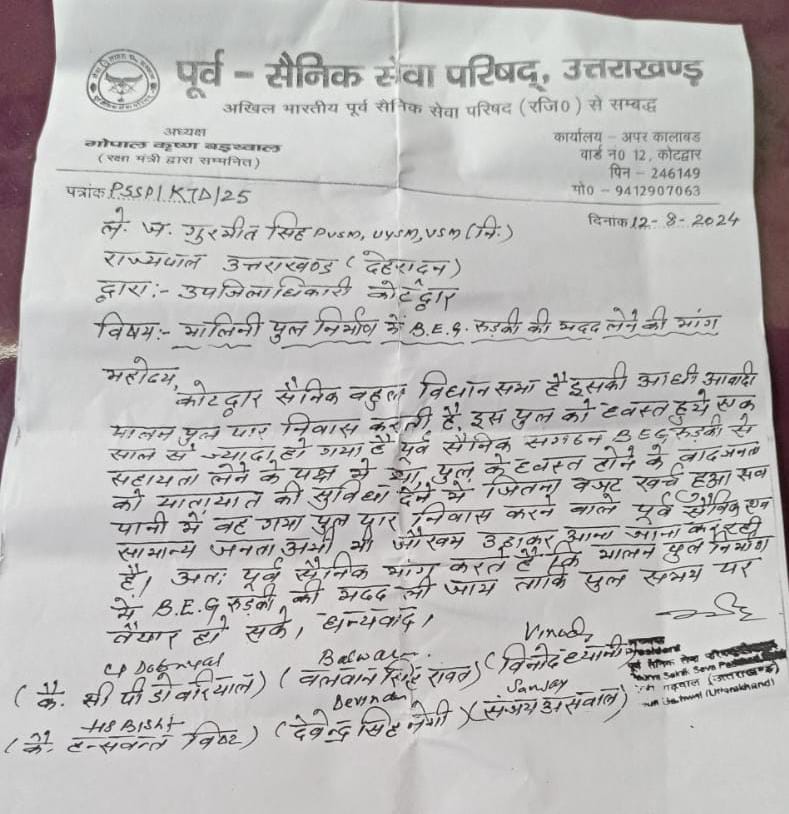 पूर्व - सैनिक सेवा परिषद्, उत्तराखण्ड़
अखिल भारतीय पूर्व सैनिक सेवा परिषद (रजि०) से सम्बद्ध
अध्यक्ष
गोपाल कृष्ण बड़थ्वाल
(रक्षा मंत्री द्वारा सम्मनित)
कार्यालय - अपर कालाबड
वार्ड न० 12, कोटद्वार
पिन - 246149
मो० - 9412907063
पत्रांक PSSP/KTD/25
दिनांक 12-8-2024
ले. ज. गुरमीत सिंह PVSM, UYSM, VSM (नि.)
राज्यपाल उत्तराखण्ड (देहरादून)
द्वारा:- उपजिलाधिकारी कोटद्वार
विषय:- मालिनी पुल निर्माण में B.E.G. रुड़की की मदद लेने की मांग
महोदय,
कोटद्वार सैनिक बहुल विधान सभा है इसकी आधी आबादी
मालन पुल पार निवास करती है, इस पुल को ध्वस्त हुये एक
साल से ज्यादा हो गया है पूर्व सैनिक संगठन BEG रुड़की से
सहायता लेने के पक्ष में था, पुल के ध्वस्त होने के बाद जनता
को यातायात की सुविधा देने में जितना बजट खर्च हुआ सब
पानी में बह गया पुल पार निवास करने वाले पूर्व सैनिक एवं
सामान्य जनता अभी भी जोखम उठाकर आना जाना कर रही
है। अतः पूर्व सैनिक मांग करते हैं कि मालन पुल निर्माण
में B.E.G रुड़की की मदद ली जाय ताकि पुल समय पर
तैयार हो सके, धन्यवाद।
CP Dobriyal
Balwan
Vinod
(कै. सी पी डोबरियाल) (बलवान सिंह रावत) (विनोद ध्यानी)
Devendra
Sanjay
HS Bisht
(कै. बिष्ट) (देवेन्द्र सिंह नेगी) (संजय असवाल)
President
(उत्तराखण्ड)
(Uttarakhand)